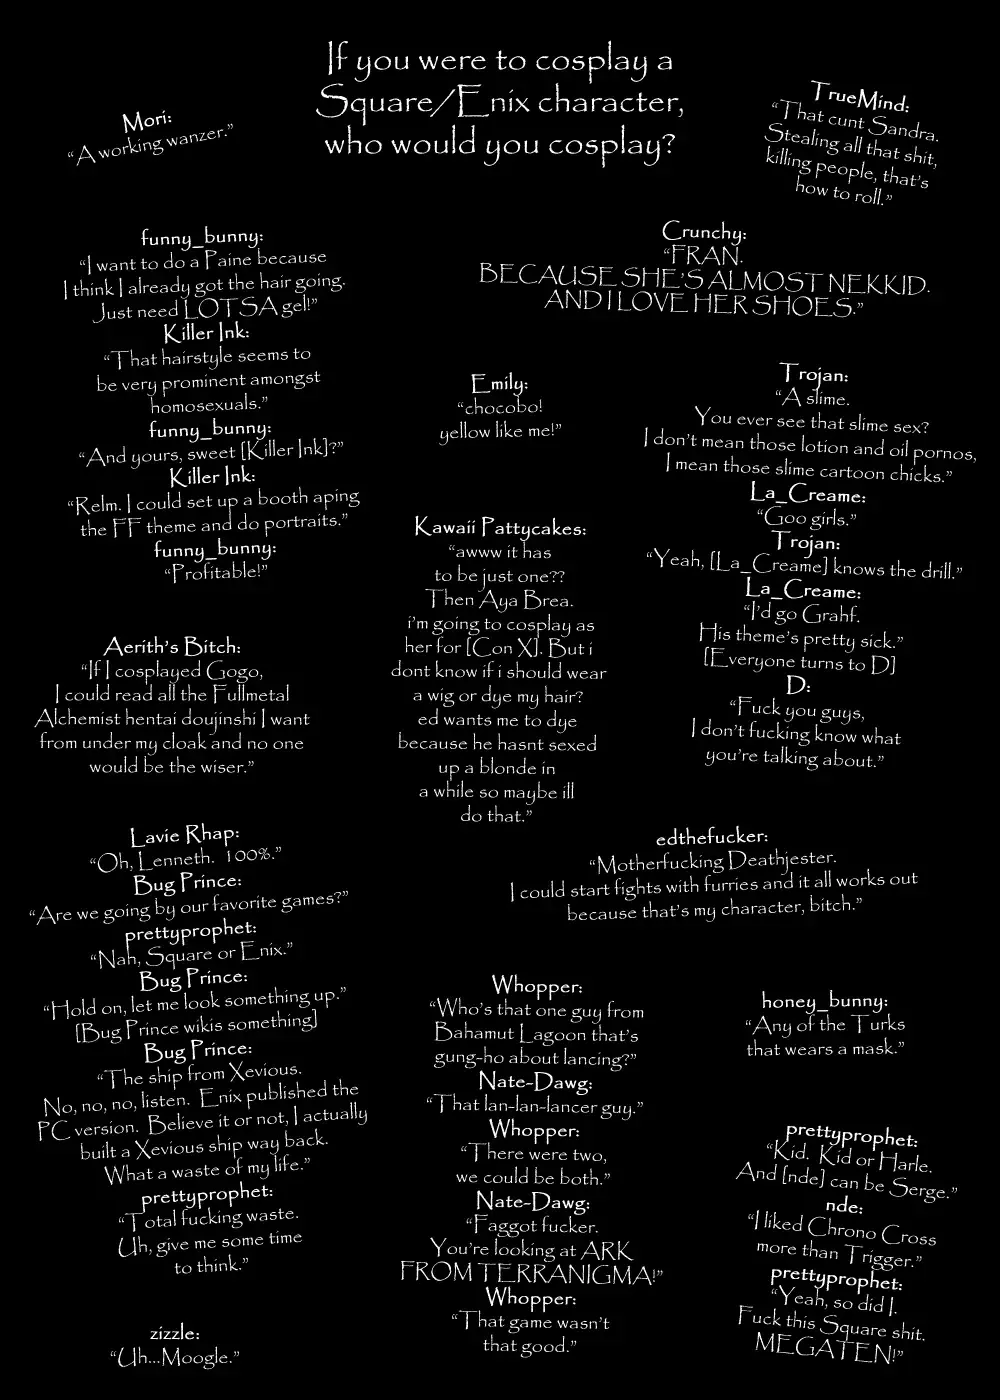 If you were to cosplay a
Square/Enix character,
who would you cosplay?
Mori:
“A working wanzer.”
TrueMind:
“That cunt Sandra.
Stealing all that shit,
killing people, that’s
how to roll.”
funny_bunny:
“I want to do a Paine because
I think I already got the hair going.
Just need LOTSA gel!”
Killer Ink:
“That hairstyle seems to
be very prominent amongst
homosexuals.”
funny_bunny:
“And yours, sweet [Killer Ink]?”
Killer Ink:
“Relm. I could set up a booth aping
the FF theme and do portraits.”
funny_bunny:
“Profitable!”
Crunchy:
“FRAN.
BECAUSE SHE’S ALMOST NEKKID.
AND I LOVE HER SHOES.”
Emily:
“chocobo!
yellow like me!”
Trojan:
“A slime.
You ever see that slime sex?
I don’t mean those lotion and oil pornos,
I mean those slime cartoon chicks.”
La_Creame:
“Goo girls.”
Trojan:
“Yeah, [La_Creame] knows the drill.”
La_Creame:
“I’d go Grahf.
His theme’s pretty sick.”
[Everyone turns to D]
D:
“Fuck you guys,
I don’t fucking know what
you’re talking about.”
Kawaii Pattycakes:
“awww it has
to be just one??
Then Aya Brea.
i’m going to cosplay as
her for [Con X]. But i
dont know if i should wear
a wig or dye my hair?
ed wants me to dye
because he hasnt sexed
up a blonde in
a while so maybe ill
do that.”
Aerith’s Bitch:
“If I cosplayed Gogo,
I could read all the Fullmetal
Alchemist hentai doujinshi I want
from under my cloak and no one
would be the wiser.”
Lavie Rhap:
“Oh, Lenneth. 100%.”
Bug Prince:
“Are we going by our favorite games?”
prettyprophet:
“Nah, Square or Enix.”
Bug Prince:
“Hold on, let me look something up.”
[Bug Prince wikis something]
Bug Prince:
“The ship from Xevious.
No, no, no, listen. Enix published the
PC version. Believe it or not, I actually
built a Xevious ship way back.
What a waste of my life.”
prettyprophet:
“Total fucking waste.
Uh, give me some time
to think.”
zizzle:
“Uh...Moogle.”
edthefucker:
“Motherfucking Deathjester.
I could start fights with furries and it all works out
because that’s my character, bitch.”
Whopper:
“Who’s that one guy from
Bahamut Lagoon that’s
gung-ho about lancing?”
Nate-Dawg:
“That lan-lan-lancer guy.”
Whopper:
“There were two,
we could be both.”
Nate-Dawg:
“Faggot fucker.
You’re looking at ARK
FROM TERRANIGMA!”
Whopper:
“That game wasn’t
that good.”
honey_bunny:
“Any of the Turks
that wears a mask.”
prettyprophet:
“Kid. Kid or Harle.
And [nde] can be Serge.”
nde:
“I liked Chrono Cross
more than Trigger.”
prettyprophet:
“Yeah, so did I.
Fuck this Square shit.
MEGATEN!”